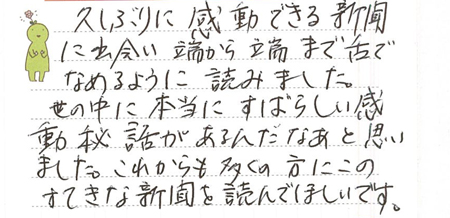 久しぶりに感動できる新聞
に出会い端から端まで舌で
なめるように読みました。
世の中に本当にすばらしい感
動秘話があるんだなあと思い
ました。これからも多くの方にこの
すてきな新聞を読んでほしいです。